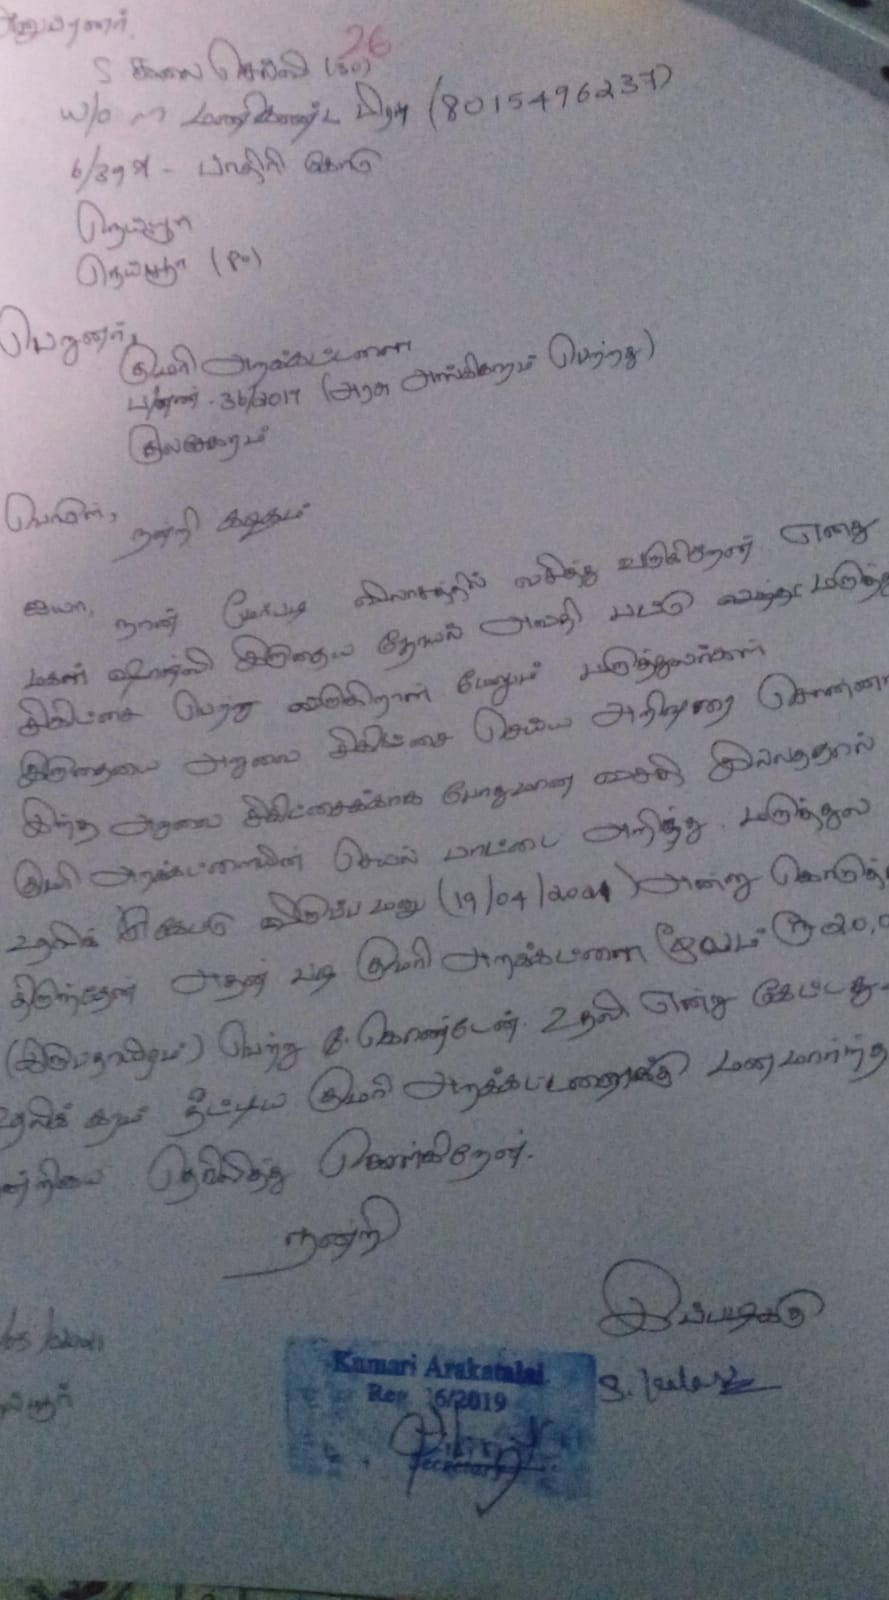 அனுப்புனர்,
26
S கலை செல்வி (30)
W/o M மணிகண்ட பிரபு (8015496237)
6/37 - பாதிரி கோடு
நெய்யூர்
நெய்யூர் (Po)
பெறுனர்,
குமரி அறக்கட்டளை
ப/எண் - 36/2019 (அரசு அங்கிகாரம் பெற்றது)
குலசேகரம்
பொருள்,
நன்றி கடிதம்
ஐயா,
நான் மேற்படி விலாசத்தில் வசித்து வருகிறேன். எனது
மகள் இருதய நோயால் அவதி பட்டு வந்த மருத்து
சிகிட்சை பெற்று வருகிறாள் மேலும் மருத்துவர்கள்
இருதயை அறுவை சிகிட்சை செய்ய அறிவுரை சொன்னா
இந்த அறுவை சிகிட்சைக்காக போதுமான வசதி இல்லாததால்
குமரி அறக்கட்டளையின் செயல் பாட்டை அறிந்து மருத்துவ
உதவிக் கேட்டு விருப்ப மனு (19/04/2021) அன்று கொடுத்
திருந்தேன் அதன் படி குமரி அறக்கட்டளை மூலம் ரூ 20,0
(இருபதாயிரம்) பெற்று கொண்டேன். உதவி என்று கேட்டது
உதவிக் கரம் நீட்டிய குமரி அறக்கட்டளைக்கு மனமார்ந்த
ன்றியை தெரிவித்து கொள்கிறேன்.
நன்றி
இப்படிக்கு
/05/2021
Kumari Arakatalai
Reg 36/2019
Secretary